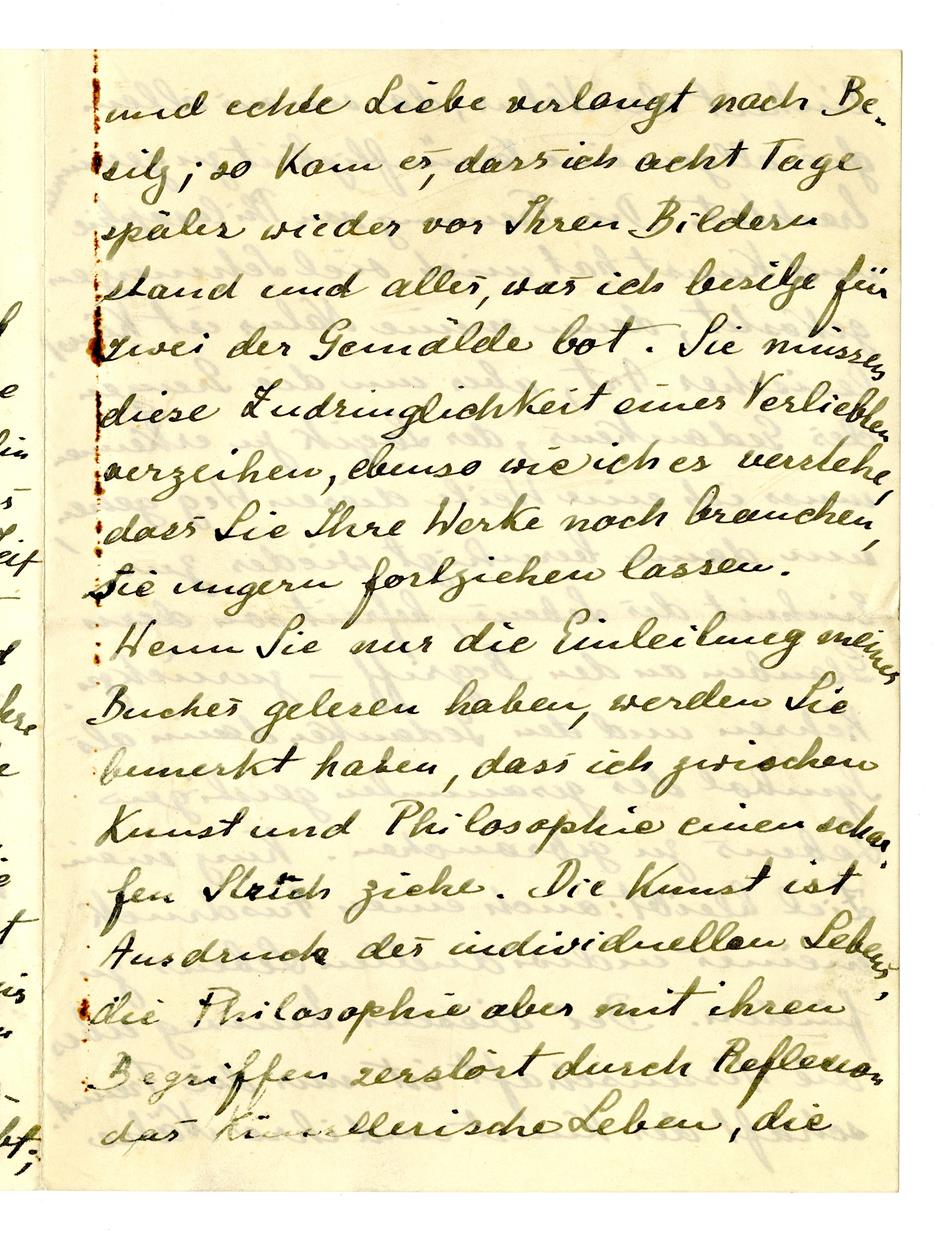 und echte Liebe verlangt nach Be-
sitz; so kam es, dass ich acht Tage
später wieder vor Ihren Bildern
stand und alles, was ich besitze für
zwei der Gemälde bot. Sie müssen
diese Zudringlichkeit eines Verliebten
verzeihen, ebenso wie ich es verstehe,
dass Sie Ihre Werke noch brauchen,
sie ungern fortziehen lassen.
Wenn Sie nur die Einleitung meines
Buches gelesen haben, werden Sie
bemerkt haben, dass ich zwischen
Kunst und Philosophie einen schar-
fen Strich ziehe. Die Kunst ist
Ausdruck des individuellen Lebens,
die Philosophie aber mit ihren
Begriffen zerstört durch Reflexion
das künstlerische Leben, die